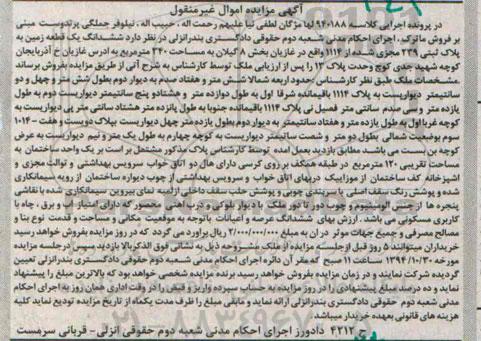 آگهی مزایده اموال غیرمنقول
در پرونده اجرایی کلاسه ۹۴۰۱۸۸ لها مژگان لطفی نیا علیهم رحمت اله، حبیب اله، نیلوفر جملگی پرتدوست مبنی
بر فروش ماترک، اجرای احکام مدنی شعبه دوم حقوقی دادگستری بندرانزلی در نظر دارد ششدانگ یک قطعه زمین به
پلاک ثبتی ۲۳۹ مجزی شده از ۱۱۱۴ واقع در غازیان بخش ۸ گیلان به مساحت ۳۴۰ مترمربع به آدرس غازیان خ آذربایجان
کوچه شهید جدی کوچ وحدت پلاک ۱۳ را پس از ارزیابی ملک توسط کارشناس به شرح آتی از طریق مزایده بفروش برساند
.مشخصات ملک طبق نظر کارشناس حدود اربعه شمالا شش متر و هفتاد صدم به دیوار دوم بطول شش متر و چهل و دو
سانتیمتر دیواریست به پلاک ۱۱۱۴ باقیمانده شرقا اول به طول دوازده متر و هشتادو پنج سانتیمتر دیواریست دوم به طول
یازده متر و سی صدم سانتی متر فصیل نی پلاک ۱۱۱۴ باقیمانده جنوبا به طول پانزده متر هشتاد سانتی متر پی دیواریست به
کوچه غربا اول به طول یازده متر و هفتاد سانتیمتر به دیوار دوم بطول یازده متر چهل دیواریست بپلاک دویست و هفت – ۱۰۱۴
سوم بوضعیت شمالی بطول دو متر و شصت سانتیمتر دیواریست به کوچه چهارم به طول یک متر و نیم دیواریست به عرض
کوچه بن بست می باشد. مطابق بازدید بعمل آمده توسط کارشناس پلاک مذکور مشتمل بر است بر یک واحد ساختمان به
مساحت تقریبی ۱۲۰ مترمربع در طبقه همکف بر روی کرسی دارای هال دو اتاق خواب سرویس بهداشتی و توالت مجزی و
آشپزخانه کف ساختمان از موزاییک دربهای اتاق خواب و سرویس بهداشتی از چوب دیواره ساختمان از رویه سیمانکاری
شده و پوشش رنگ سقف اصلی با سربندی چوبی و پوشش حلب سقف داخلی ازلمبه نمای بیرون سیمانکاری شده با نقاشی
پنجره ها از جنس آلومینیوم و چوب دور تا دور ملک با دیوار بلوکی و درب آهنی محصور که دارای امتیاز آب و برق، چاه با
کاربری مسکونی می باشد. ارزش بهای ششدانگ عرصه و اعیانات باتوجه به موقعیت مکانی مساحت و قدمت نوع بنا و
مصالح مصرفی و جمیع جهات موثر در آن به مبلغ ۳/۰۰۰/۰۰۰/۰۰۰ ریال براورد می گردد که در روز مزایده بفروش خواهد رسید
خریداران میتوانند ۵ روز قبل ازجلسه مزایده از ملک مشروحه ذیل به نشانی فوق الذکربالا بازدید سپس درجلسه مزایده
مورخه ۱۳۹۴/۱۰/۳۰ ساعت ۱۱ صبح که مقر آن دائره اجرای احکام مدنی شعبه دوم حقوقی دادگستری بندرانزلی تعیین
گردیده شرکت نمایند و در زمان مزایده بفروش خواهد رسید برنده مزایده شخصی خواهد بود که بالاترین مبلغ را پیشنهاد
نماید و ده درصد مبلغ پیشنهادی را در روز مزایده به حساب سپرده واریز و فیش را در وقت اداری همان روز به اجرای احکام
مدنی شعبه دوم حقوقی دادگستری بندرانزلی ارائه نماید و مابقی مبلغ را ظرف مدت یکماه از تاریخ مزایده تودیع نماید کلیه
هزینه های قانونی بعهده خریدار میباشد.
ح ۴۲۱۲ دادورز اجرای احکام مدنی شعبه دوم حقوقی انزلی- قربانی سرمست